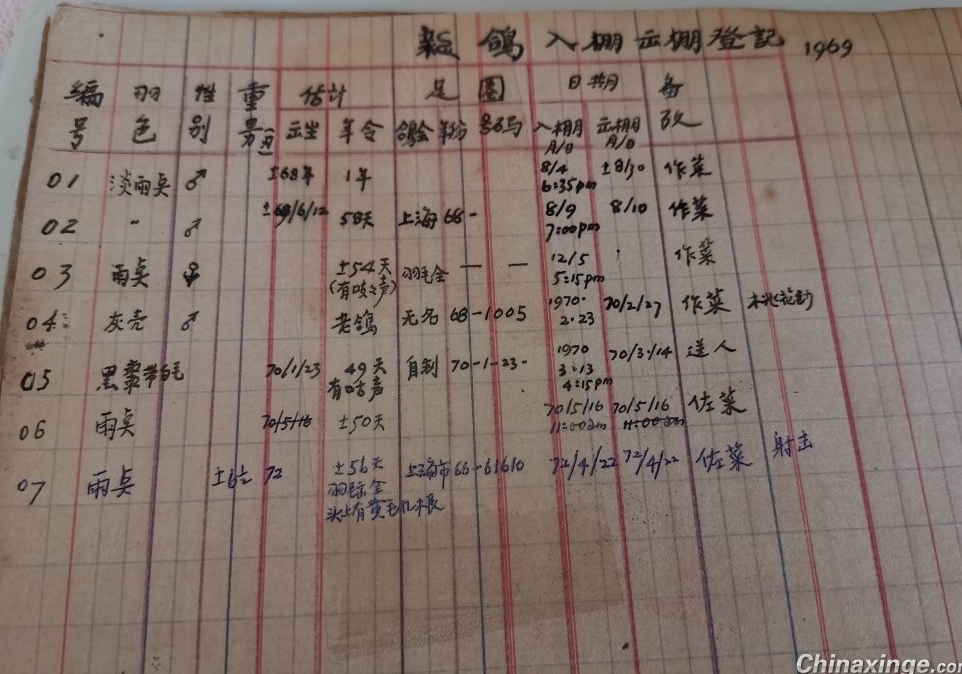 鸽 入棚出棚登記 1969
编 羽 性 重 估计 足 圈 日期 备
号 色 别 量 出生 年令 鸽会 年份 号码 入棚 出棚 攷
月/日 月/日
01 淡雨桌 ♂ ±68年 1年 8/4 ±8/30 作菜
6:35pm
02 〃 ♂ ±69/6/12 58天 上海 68- 8/9 8/10 作菜
7:00pm
03 雨桌 ±54天 羽毛全 — — 12/5 作菜
(有吱之声) 5:15pm
04 灰壳 ♂ 老鸽 无名 68-1005 1970. 70/2/27 作菜
2.23
05 黑 带白毛 70/1/23 49天 自制 70-1-23- 1970 70/3/14 送人
有咕声 3:13
4:15pm
06 雨桌 70/5/16 ±50天 70/5/16 70/5/16 佐菜
11:00am 11:00am
07 雨桌 72 ±56天 上海市 66-61610 72/4/22 72/4/22 佐菜 射击
羽毛全
头上有黄毛
Chinaxinge.com